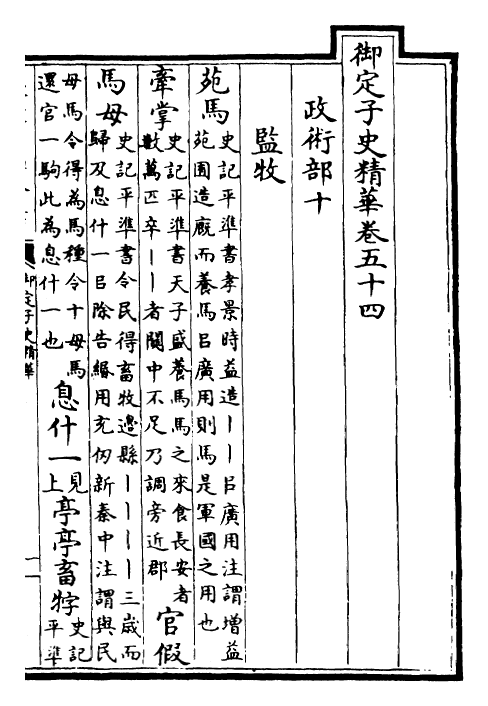 御定子史精華卷五十四
政術部十
監牧
苑馬
史記平準書孝景時益造丨丨㠯廣用注謂增益
苑囿造廐而養馬㠯廣用則馬是軍國之用也
牽掌
史記平準書天子盛養馬馬之來食長安者
數萬匹卒丨丨者關中不足乃調旁近郡
官假
馬母
史記平準書令民得畜牧邊縣丨丨丨丨三歲而
歸及息什一㠯除告緡用充仞新秦中注謂與民
母馬令得為馬種令十母馬
還官一駒此為息什一也
息什一
見
上
亭亭畜牸
史記
平準
御定子史精華